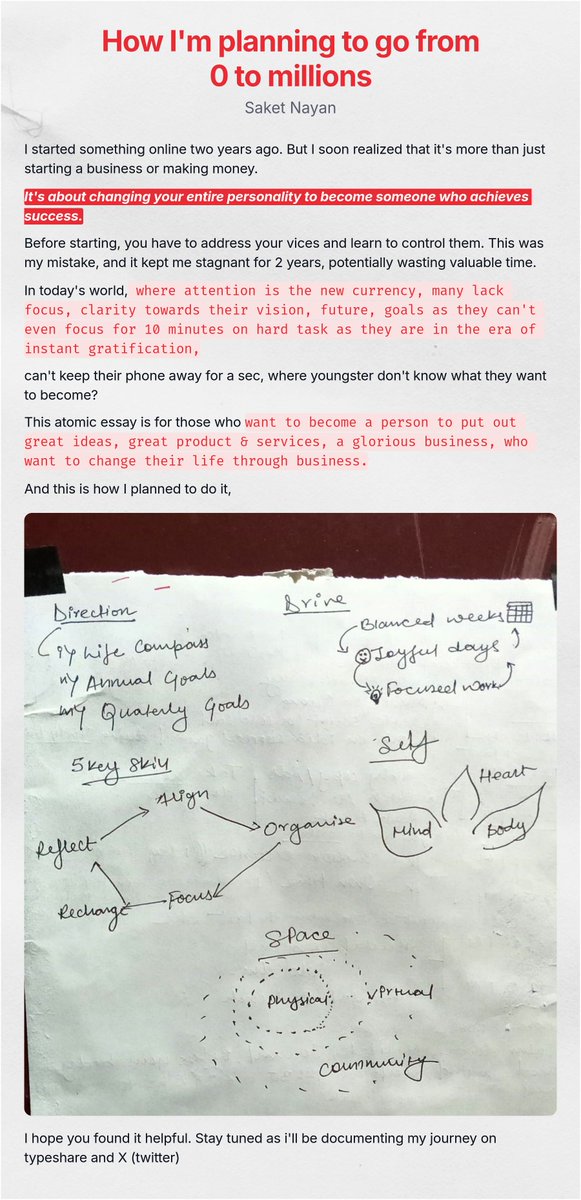 How I'm planning to go from
0 to millions
Saket Nayan
I started something online two years ago. But I soon realized that it's more than just
starting a business or making money.
It's about changing your entire personality to become someone who achieves
success.
Before starting, you have to address your vices and learn to control them. This was
my mistake, and it kept me stagnant for 2 years, potentially wasting valuable time.
In today's world, where attention is the new currency, many lack
focus, clarity towards their vision, future, goals as they can't
even focus for 10 minutes on hard task as they are in the era of
instant gratification,
can't keep their phone away for a sec, where youngster don't know what they want
to become?
This atomic essay is for those who want to become a person to put out
great ideas, great product & services, a glorious business, who
want to change their life through business.
And this is how I planned to do it,
Direction
My Life Compass
My Annual Goals
My Quaterly Goals
Drive
Blanced weeks
Joyful days
Focused work
5 key Skill
Align
Organise
Focus
Recharge
Reflect
Self
Heart
Mind
Body
Space
Physical
Virtual
Community
I hope you found it helpful. Stay tuned as i'll be documenting my journey on
typeshare and X (twitter)